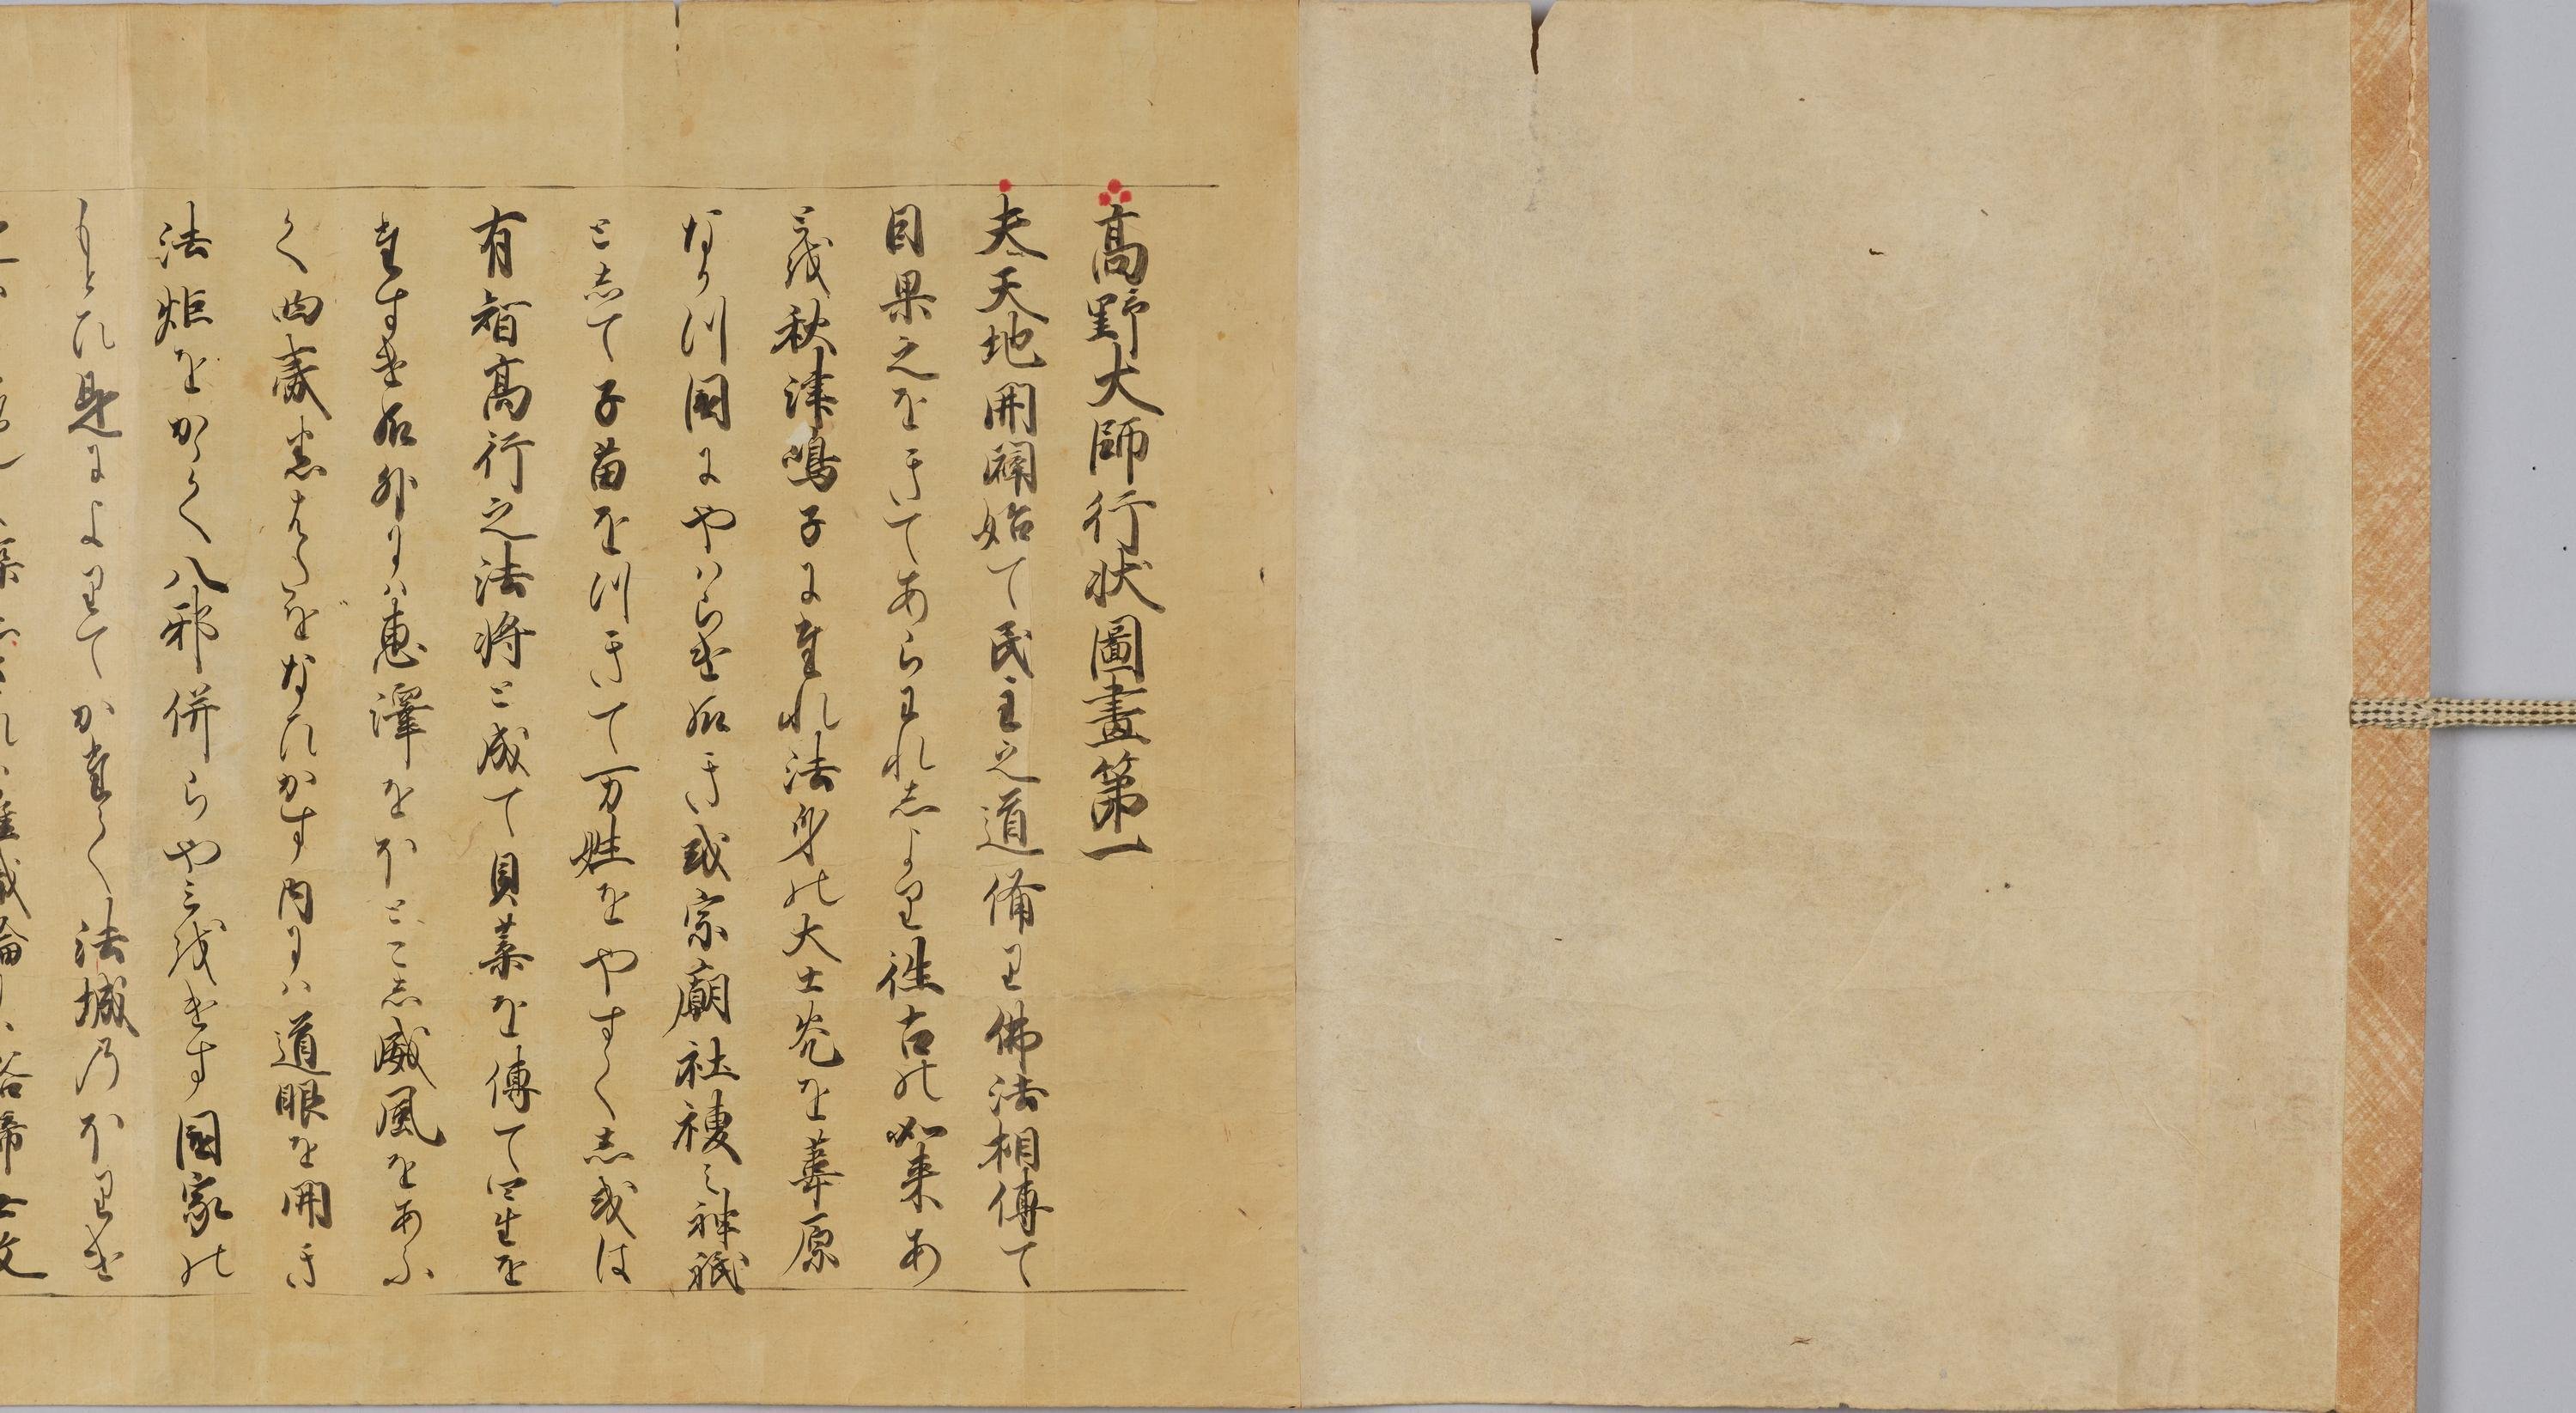 高野大師行状圖畫第一
夫天地開闢始て民主之道備り佛法相傳て
因果之をきてあらわれしより徃古の如来あ
とを秋津嶋子にたれ法身の大士光を葦原
なかつ国にやはらけ給き或宗廟社稷之神祇
として子苗をつきて万姓をやすくし或は
有智高行之法将と成て貝葉を傳て四生を
たすけ給外には恵澤をほとこし威風をあふ
く四夷悉はたをなひかす内には道眼を開き
法炬をかゝく八邪併らやみをけす国家の
もとひ是によりてかたく法城乃ほりき